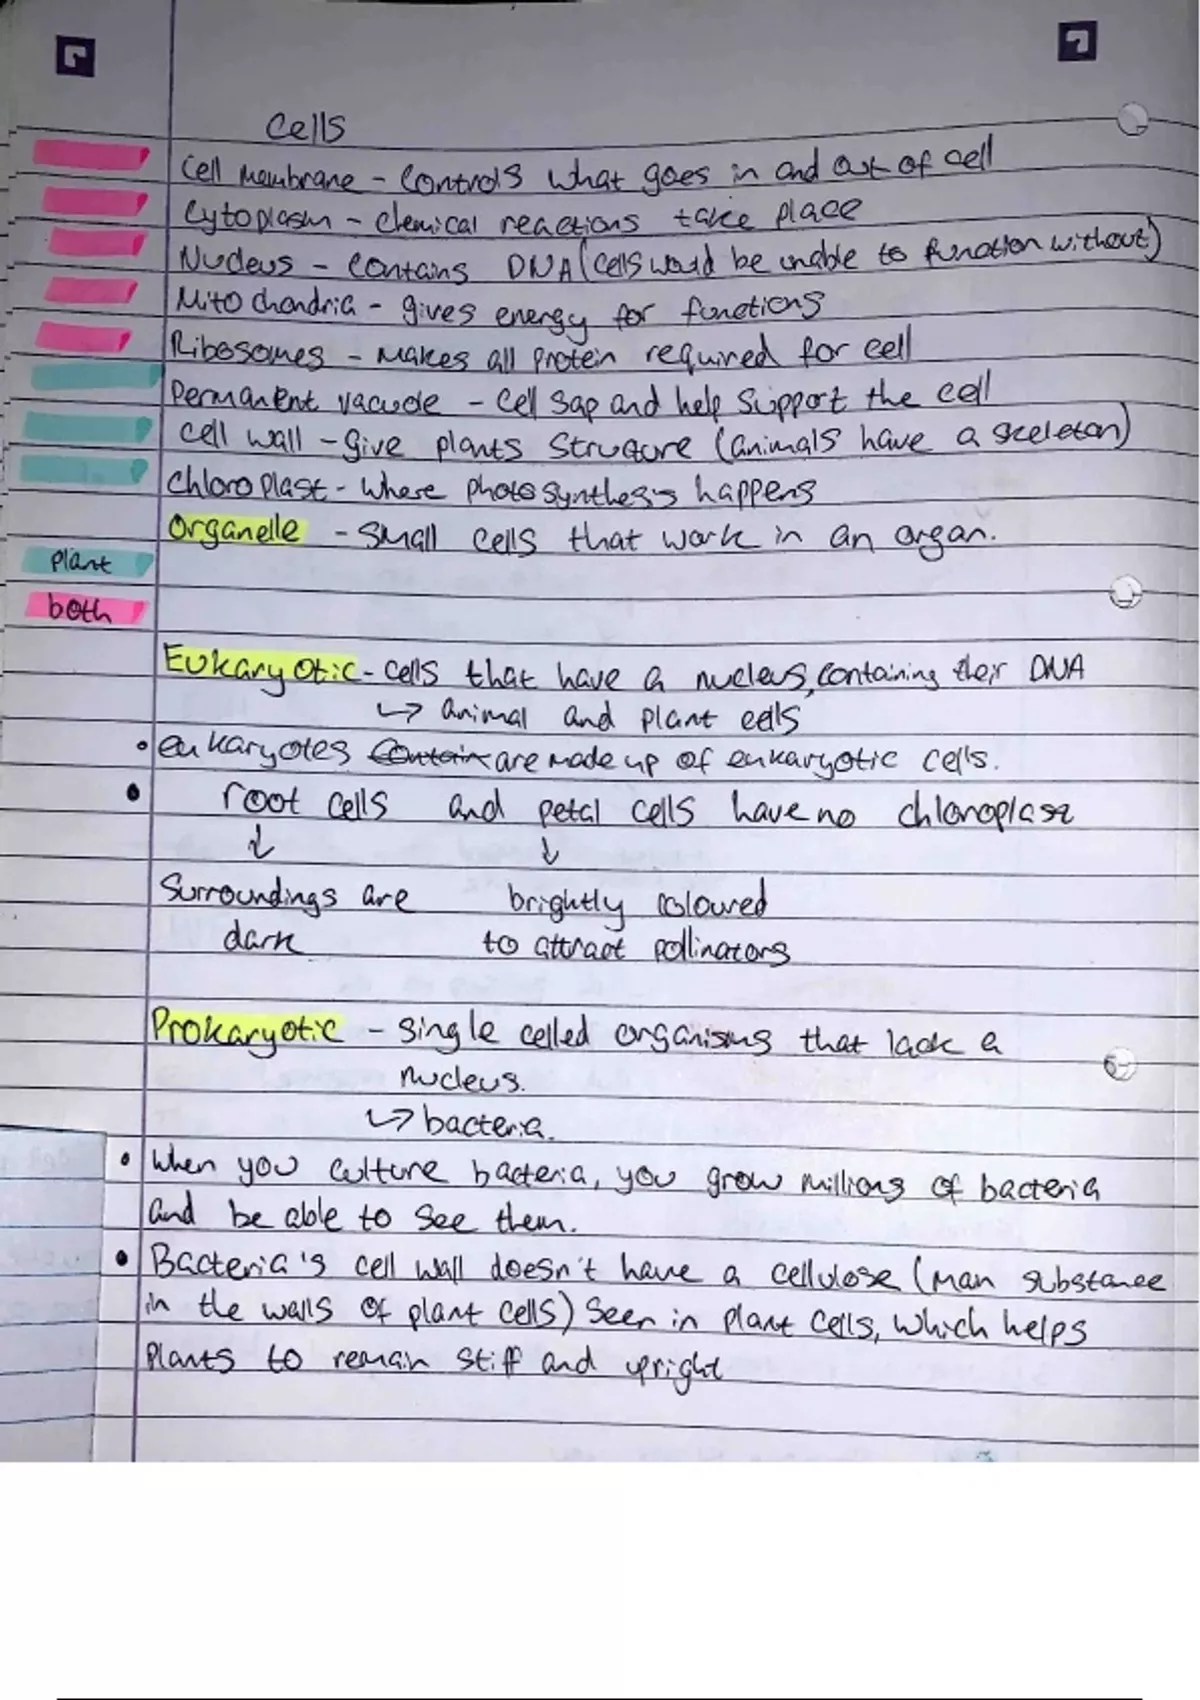 Cells
Cell Membrane - Controls what goes in and out of cell
Cytoplasm - chemical reactions take place
Nucleus - contains DNA (cells would be unable to function without)
Mitochondria - gives energy for functions
Ribosomes - makes all protein required for cell
Permanent vacuole - cell sap and help support the cell
cell wall - give plants structure (animals have a skeleton)
Chloroplast - where photosynthesis happens
Organelle - small cells that work in an organ.
plant
both
Eukaryotic - cells that have a nucleus, containing their DNA
↳ animal and plant cells
• eukaryotes contain are made up of eukaryotic cells.
• root cells and petal cells have no chloroplast
↓ ↓
Surroundings are brightly coloured
dark to attract pollinators
Prokaryotic - single celled organisms that lack a
nucleus.
↳ bacteria.
• When you culture bacteria, you grow millions of bacteria
and be able to see them.
• Bacteria's cell wall doesn't have a cellulose (man substance
in the walls of plant cells) seen in plant cells, which helps
plants to remain stiff and upright